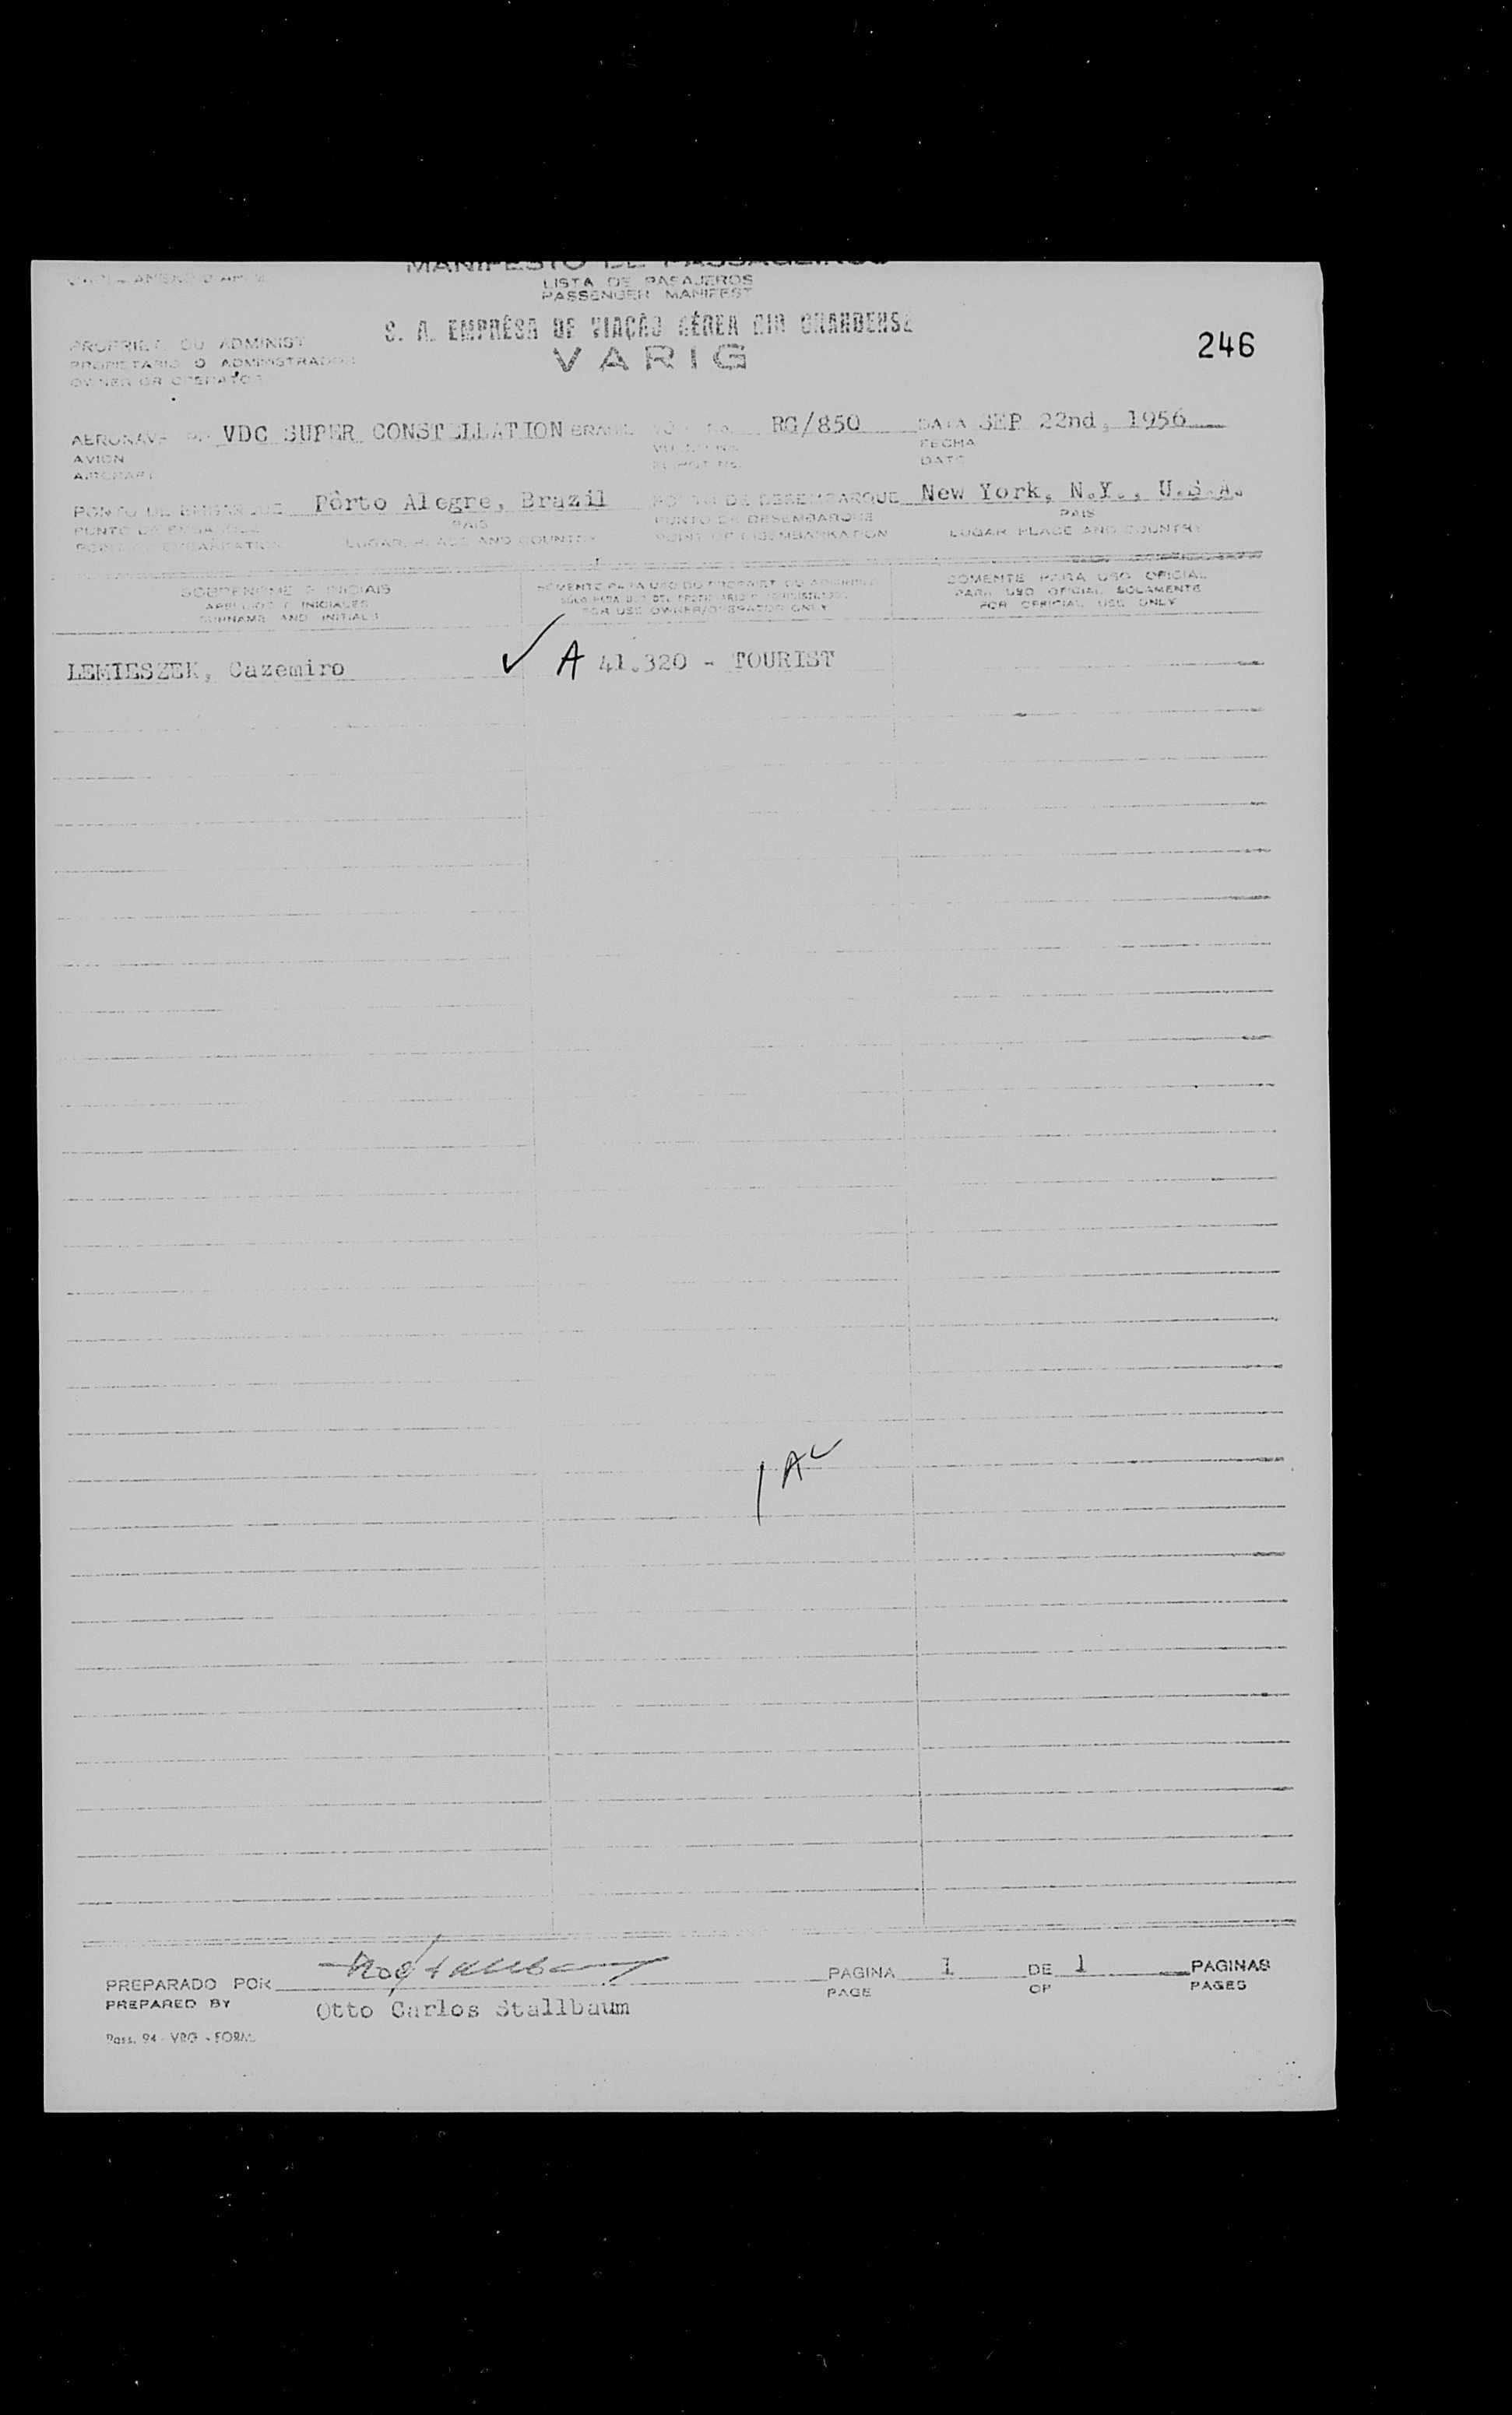 MANIFESTO DE PASSAGEIROS
LISTA DE PASAJEROS
PASSENGER MANIFEST
S. A. EMPRÊSA DE VIAÇÃO AÉREA RIO GRANDENSE
VARIG
246
PROPRIET. OU ADMINIST.
PROPIETARIO O ADMINISTRADOR
OWNER OR OPERATOR
AERONAVE VDC SUPER CONSTELLATION BRASIL RG/850 DATA SEP 22nd, 1956
AVION FECHA
AIRCRAFT FLIGHT No. DATE
PONTO DE EMBARQUE Pôrto Alegre, Brazil PONTO DE DESEMBARQUE New York, N.Y., U.S.A.
PUNTO DE EMBARQUE PAIS PUNTO DE DESEMBARQUE PAIS
POINT OF EMBARKATION LUGAR, PLACE AND COUNTRY POINT OF DISEMBARKATION LUGAR, PLACE AND COUNTRY
SOBRENOME E INICIAIS SOMENTE PARA USO DO PROPRIET. OU ADMINIST. SOMENTE PARA USO OFICIAL
APELLIDOS E INICIALES PARA USO OFICIAL SOLAMENTE
SURNAME AND INITIALS FOR USE OWNER/OPERATOR ONLY FOR OFFICIAL USE ONLY
LEMIESZEK, Cazemiro ✓ A 41.320 - TOURIST
1 A ✓
PREPARADO POR PAGINA 1 DE 1 PAGINAS
PREPARED BY Otto Carlos Stallbaum PAGE OF PAGES
Pass. 94 - VRG - FORM.